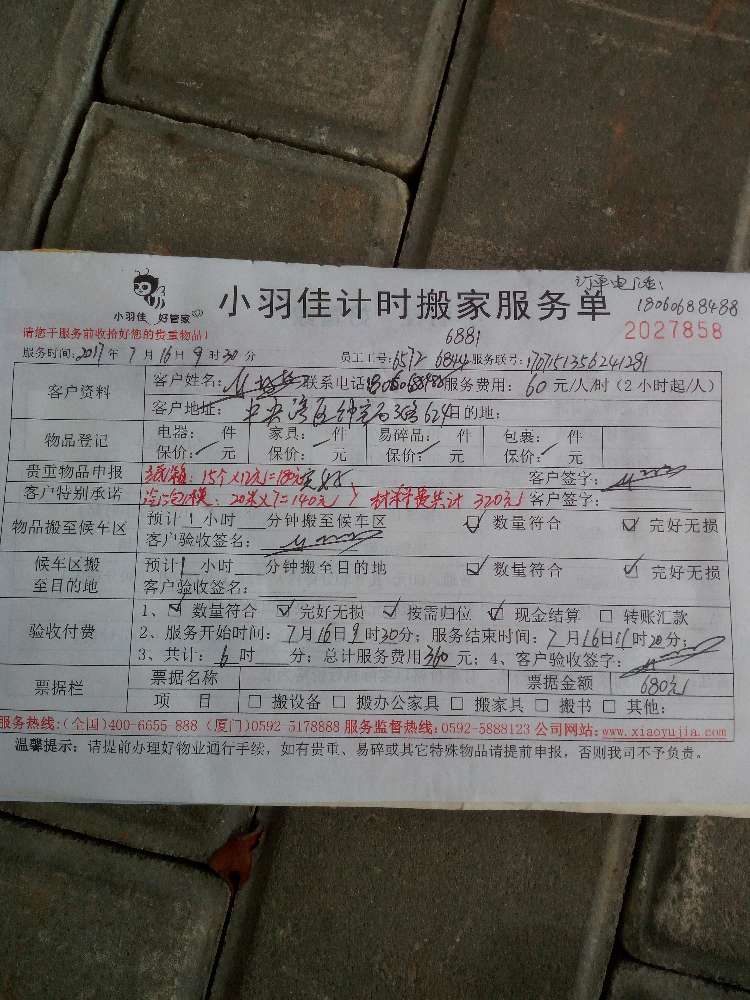 订单电话:
18060688488
小羽佳 好管家
小羽佳计时搬家服务单
2027858
请您于服务前收拾好您的贵重物品!
6881
服务时间:2017年7月16日9时30分 员工工号:6572 6844 服务联号:1707151356241281
客户资料 客户姓名: 联系电话18060688488服务费用: 60元/人/时(2小时起/人)
客户地址: 中央湾区 624目的地:
物品登记 电器: 件 家具: 件 易碎品: 件 包裹: 件
保价: 元 保价: 元 保价: 元 保价: 元
贵重物品申报 纸箱: 15个×12元=180元 完好 客户签字:
客户特别承诺 汽泡膜: 20米×7=140元 } 材料费共计 320元 客户签字:
物品搬至候车区 预计1小时 分钟搬至候车区 ☑ 数量符合 ☑ 完好无损
客户验收签名:
候车区搬至目的地 预计1小时 分钟搬至目的地 ☑ 数量符合 ☑ 完好无损
客户验收签名:
验收付费 1、☑ 数量符合 ☑ 完好无损 ☑ 按需归位 ☑ 现金结算 □ 转账汇款
2、服务开始时间: 7月16日9时30分; 服务结束时间: 7月16日11时20分;
3、共计: 6时 分; 总计服务费用360元; 4、客户验收签字:
票据栏 票据名称 票据金额 680元
项 目 □ 搬设备 □ 搬办公家具 □ 搬家具 □ 搬书 □ 其他:
服务热线:(全国)400-6655-888 (厦门)0592-5178888 服务监督热线:0592-5888123 公司网站:www.xiaoyujia.com
温馨提示: 请提前办理好物业通行手续, 如有贵重、易碎或其它特殊物品请提前申报, 否则我司不予负责。